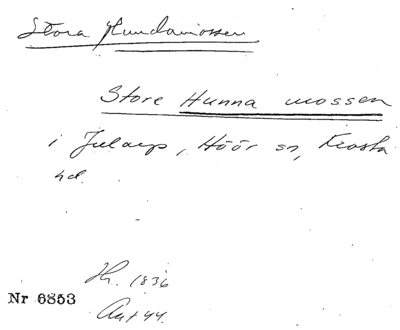 Stora Hundamossen
Store Hunna mossen
i Jularp, Höör sn, Frosta
hd.
Hr. 1836
Nr 6853
Aut 44.